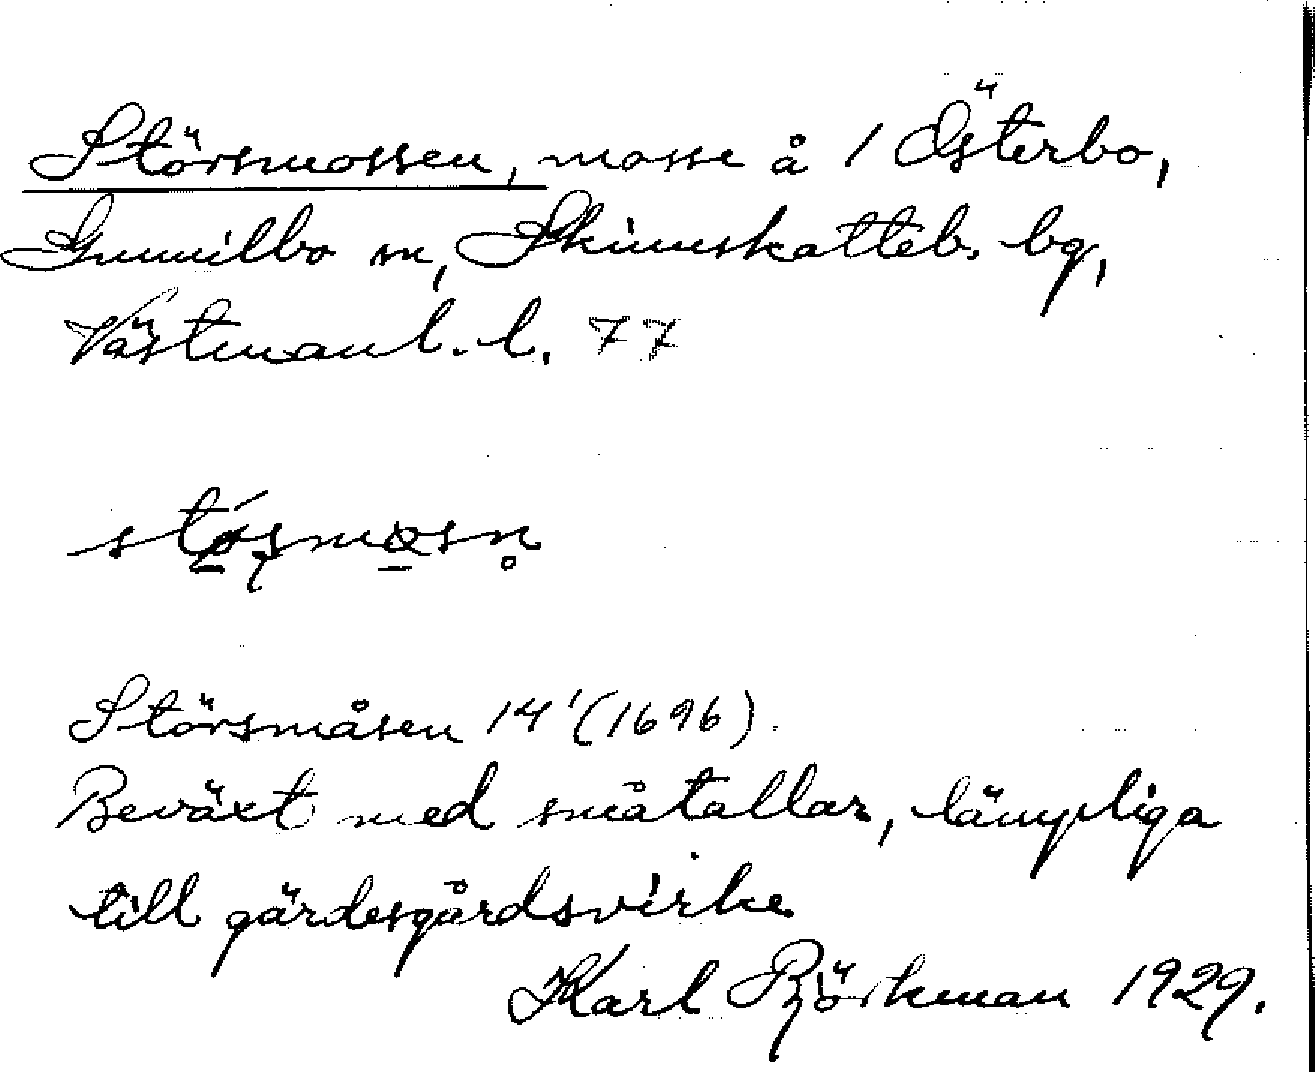 Störsmossen, mosse å 1 Österbo,
Gunnilbo sn, Skinnskatteb. bg,
Västmanl. l. 77
Störsmåsen 14' (1696).
Beväxt med småtallar, lämpliga
till gärdesgårdsvirke.
Karl Björkman 1929.